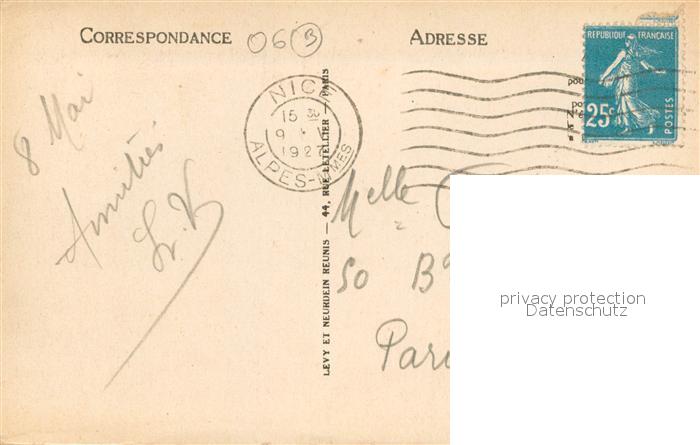 CORRESPONDANCE
06 B
ADRESSE
8 Mai
Amitiés
NICE
15
9
1927
ALPES-MMES
REPUBLIQUE FRANÇAISE
25c
POSTES
LEVY ET NEURDEIN REUNIS — 44, RUE LETELLIER — PARIS
Melle
50 B
Pari
privacy protection
Datenschutz